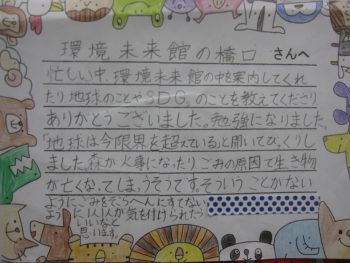 環境未来館の橋口さんへ
忙しい中環境未来館の中を案内してくれ
たり地球のことやSDGsのことを教えてくださり
ありがとうございました。勉強になりました。
「地球は今限界を超えている」と聞いてびっくりし
ました。森が火事になったりごみの原因で生き物
が亡くなってしまうそうです。そういうことがない
ようにごみをそこらへんにすてない
ように1人1人が気を付けられたら
いいなと
思います。